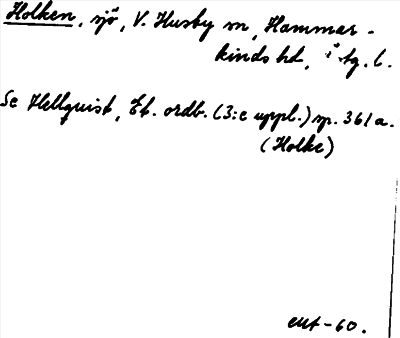 Holken, sjö, V. Husby sn, Hammar-
kinds hd, Ötg. l.
Se Hellquist, Et. ordb. (3:e uppl.) sp. 361 a.
(Holke)
-60.